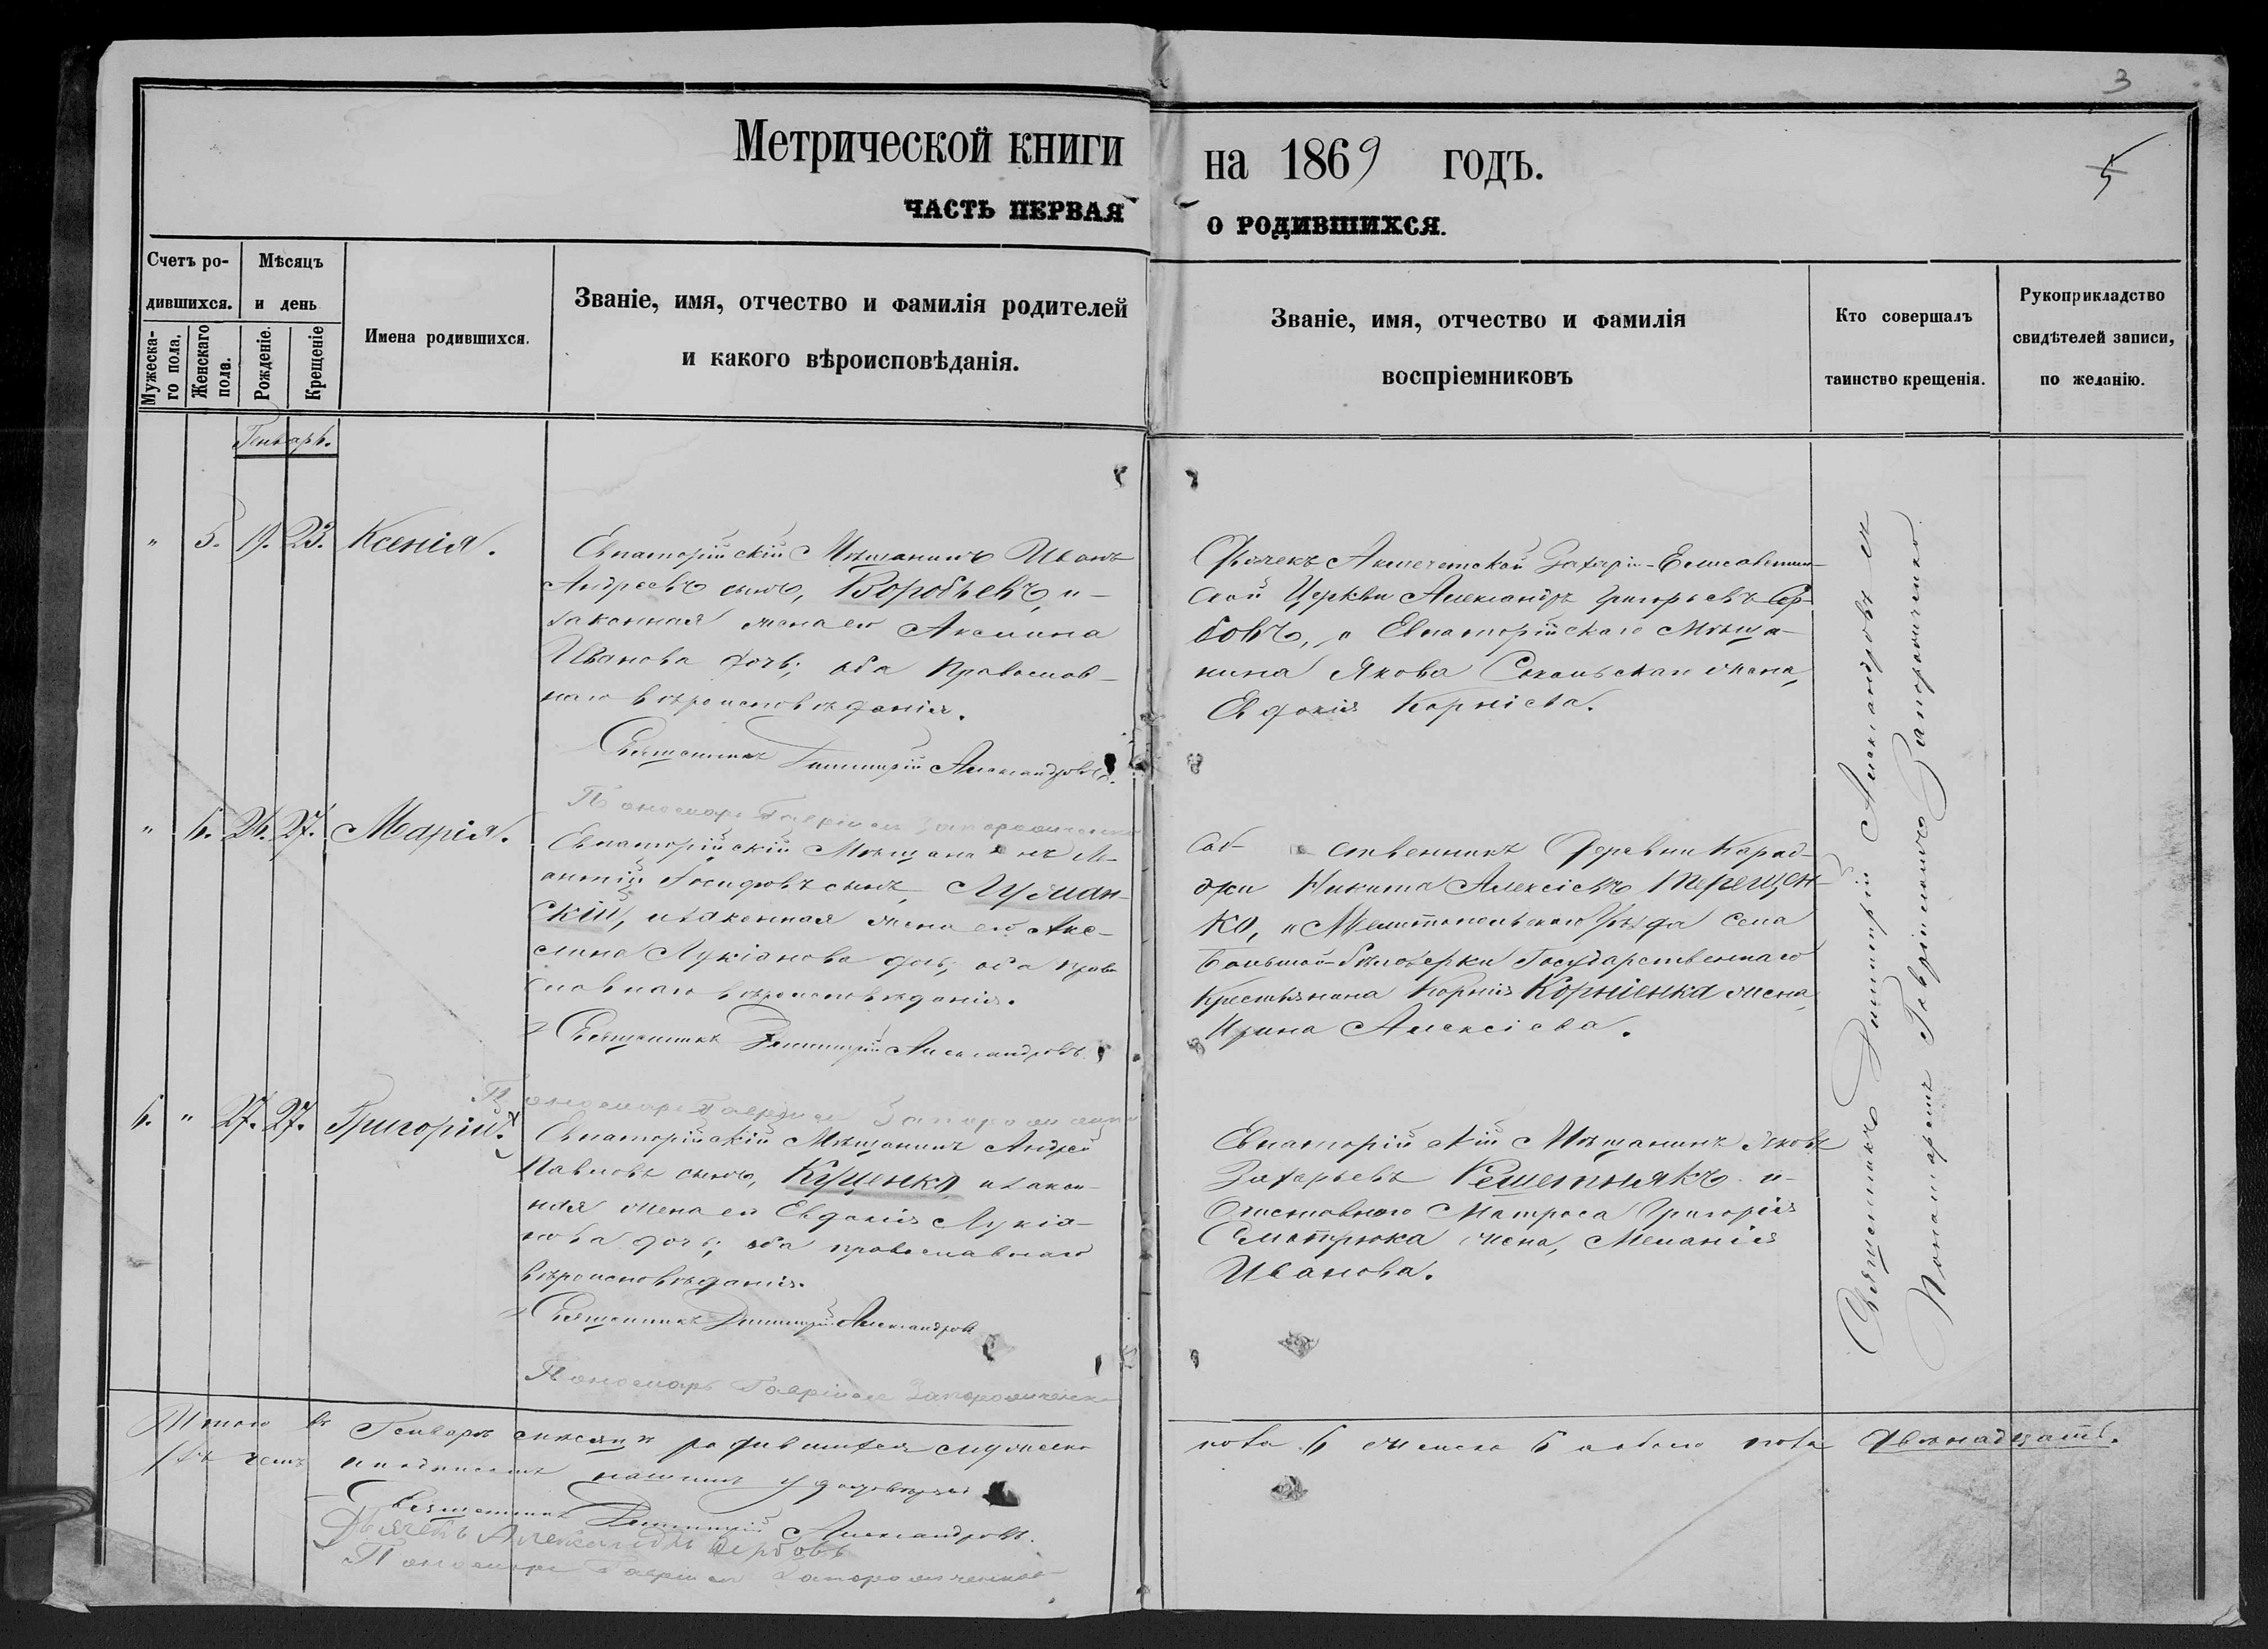 3
Метрической книги на 1869 годъ.
5
ЧАСТЬ ПЕРВАЯ О РОДИВШИХСЯ.
Счетъ ро-
дившихся.
Мѣсяцъ
и день
Мужеска-
го пола.
Женскаго
пола.
Рожденіе.
Крещеніе
Имена родившихся.
Званіе, имя, отчество и фамилія родителей
и какого вѣроисповѣданія.
Званіе, имя, отчество и фамилія
воспріемниковъ
Кто совершалъ
таинство крещенія.
Рукоприкладство
свидѣтелей записи,
по желанію.
Генварь.
" 5. 19. 23. Ксенія.
Евпаторійскій Мѣщанинъ Иванъ
Андреевъ сынъ, Воробьевъ, и
законная жена его Акилина
Иванова дочь; оба Православ-
наго вѣроисповѣданія.
Священникъ Димитрій Александровъ.
Пономарь Гавріилъ Запорожченко
Дьячекъ Акмечетской Захаріи-Елисаветин-
ской Церкви Александръ Григорьевъ Сер-
бовъ, и Евпаторійскаго Мѣща-
нина Якова Сокольскаго жена,
Евдокія Корніева.
" 6. 26. 27. Марія.
Евпаторійскій Мѣщанинъ Ле-
онтій Іосифовъ сынъ, Лучан-
скій, и законная жена его Аки-
лина Лукіанова дочь; оба Право
славнаго вѣроисповѣданія.
Священникъ Димитрій Александровъ.
Пономарь Гавріилъ Запорожченко
Соб- ственникъ Деревни Карад-
жи Никита Алексіевъ Терещен-
ко, и Мелитопольскаго Уѣзда Села
Большой-Бѣлозерки Государственнаго
Крестьянина Корнія Корніенка жена,
Ирина Алексіева.
6. " 27. 27. Григорій.
Евпаторійскій Мѣщанинъ Андрей
Павловъ сынъ, Куценко и закон-
ная жена его Евдокія Лукіа-
нова дочь; оба православнаго
вѣроисповѣданія.
Священникъ Димитрій Александровъ
Пономарь Гавріилъ Запорожченко
Евпаторійскій Мѣщанинъ Яковъ
Захарьевъ Решетнякъ и
Отставнаго Матроса Григорія
жена, Меланія
Иванова.
Священникъ Димитрій Александровъ и
Пономарь Гавріилъ Запорожченко
Итого въ Генварѣ мѣсяцѣ родившихся мужеска
пола 6 женска 6 обоего пола двѣнадцать.
въ чемъ подписомъ нашимъ удостовѣряемъ
Священникъ Димитрій Александровъ.
Дьячекъ Александръ Сербовъ
Пономарь Гавріилъ Запорожченко